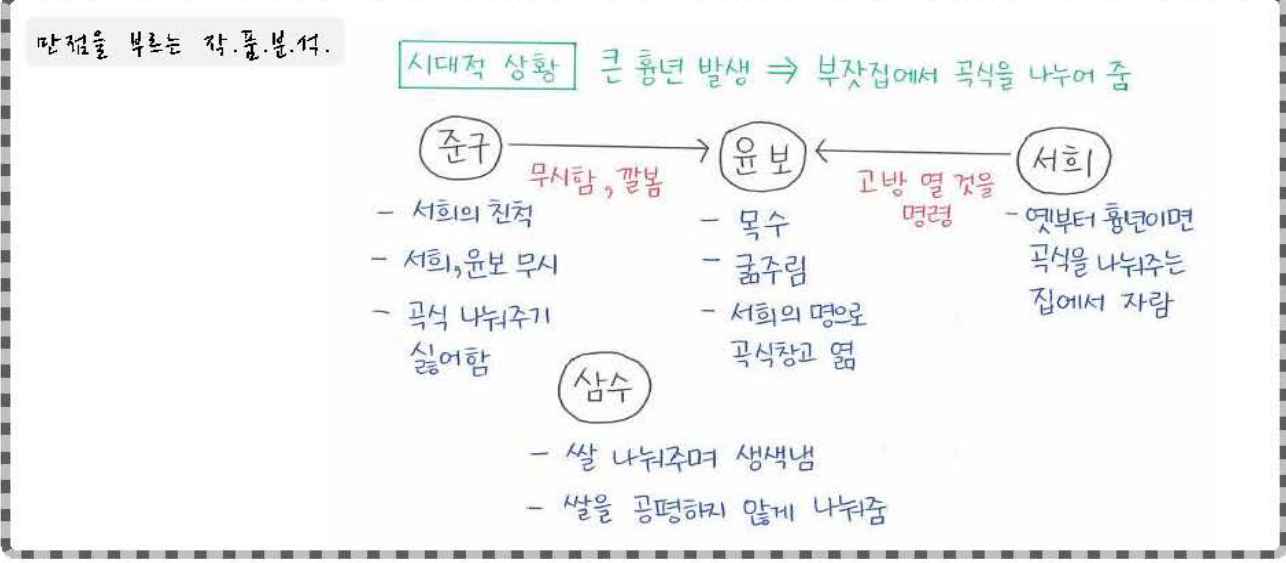 만점을 부르는 작.품.분.석.
시대적 상황 큰 흉년 발생 ⇒ 부잣집에서 곡식을 나누어 줌
준구
무시함, 깔봄
윤보
고방 열 것을
명령
서희
- 서희의 친척
- 서희, 윤보 무시
- 곡식 나눠주기
싫어함
- 목수
- 굶주림
- 서희의 명으로
곡식창고 엶
- 옛부터 흉년이면
곡식을 나눠주는
집에서 자람
삼수
- 쌀 나눠주며 생색냄
- 쌀을 공평하지 않게 나눠줌